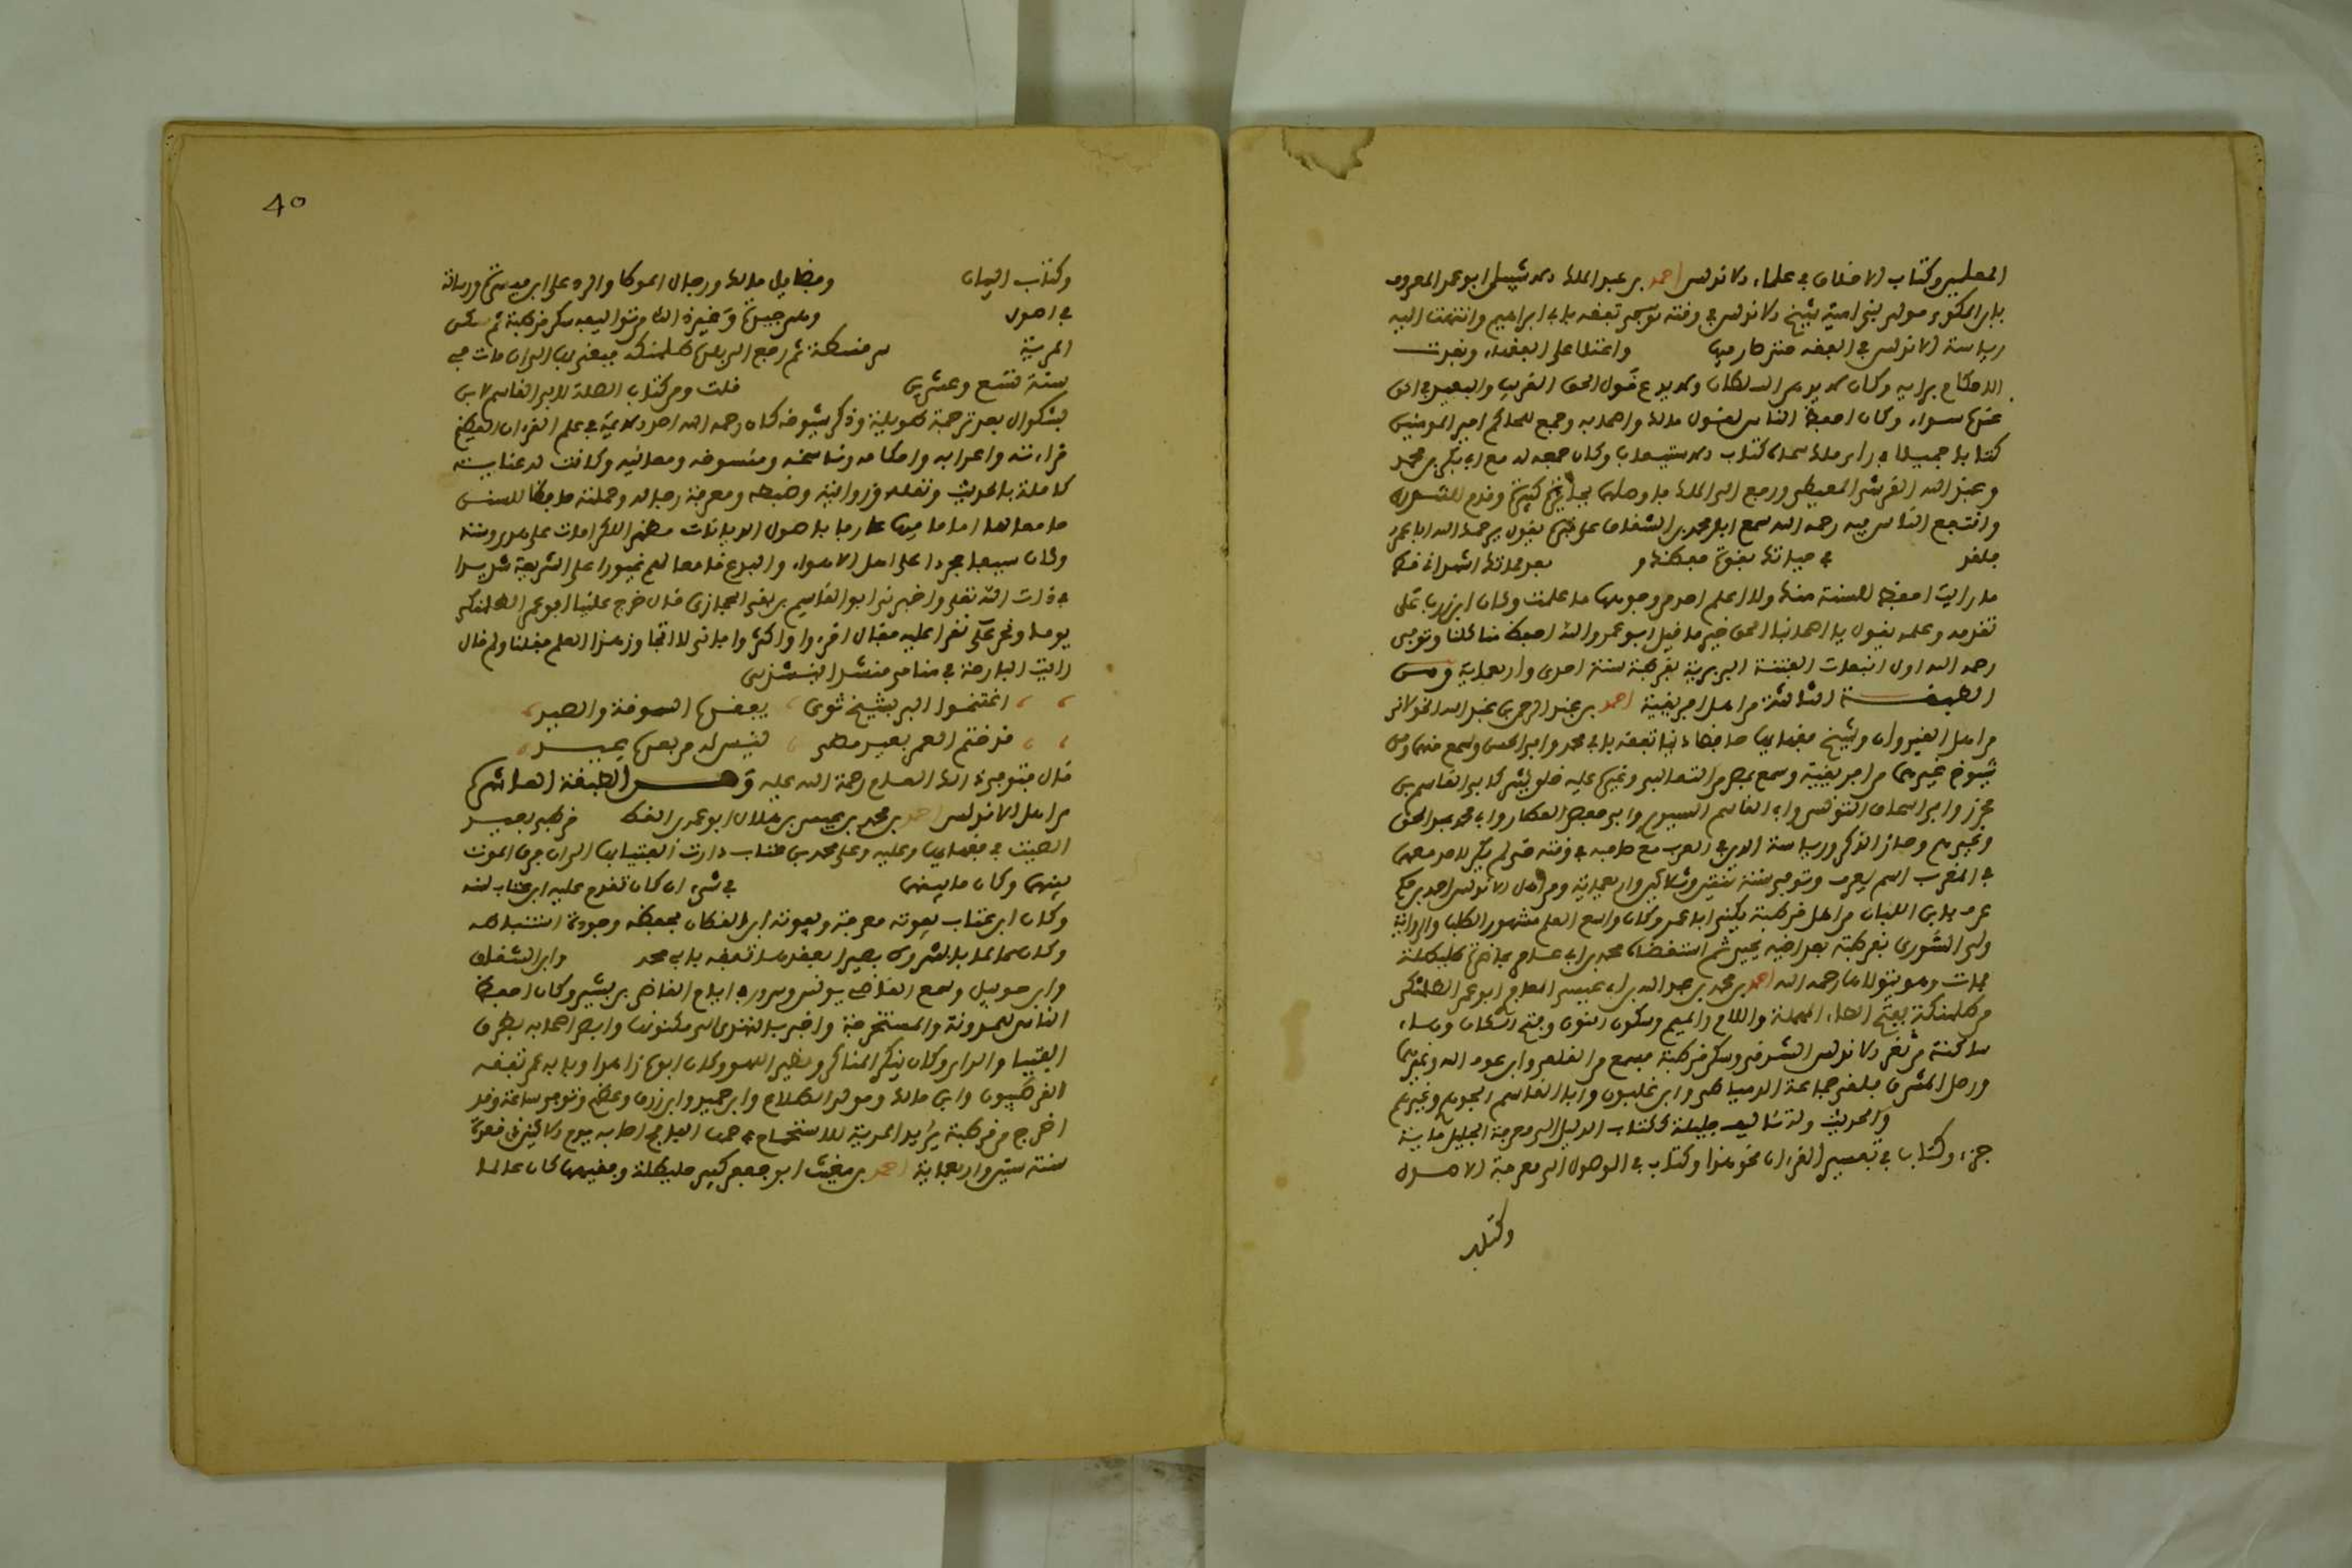 المعلمين وكتاب الاختلاف في علماء الاندلس احمد بن عبد الملك الاشبيلي ابو عمر المعروف
بابن المكوي مولى بني امية شيخ الاندلس في وقته تفقه بابي ابراهيم وانتهت اليه
رياسة الاندلس في الفقه حتى صار فيها واعتلا على الفقهاء ونفذت
الاحكام برايه وكان لا يداهن السلطان ولا يدع قول الحق القريب والبعيد في الحق
عنده سواء وكان احفظ الناس لقول مالك واصحابه وجمع للحاكم امير المومنين
كتابا جميلا في راي مالك سماه كتاب الاستيعاب وكان جمعه له مع ابي بكر بن محمد
وعبيد الله القرشي المعيطي ورفع الى الملك وقدم للشورى
وانتفع الناس به رحمه الله سمع ابا محمد بن الشقاق يقول يرحمك الله ابا عمر
فلقد في حياتك بقوة حفظك بعد مماتك اشهد اني قط
ما رايت احفظ للسنة منك ولا اعلم احد من وجوهها ما علمت وكان ابن زرب على
تقدمه وعلمه يقول يا اصحابنا الحق خير ما قيل ابو عمر والله احفظ منا كلنا وتوفي
رحمه الله اول انبعاث الفتنة البربرية بقرطبة سنة احدى واربعماية ومن
الطبقة الثالثة من اهل افريقية احمد بن عبد الرحمن بن عبد الله الخولاني
من اهل القيروان وشيخ فقهايها حافظا دينا تفقه بابي محمد وابي الحسن وسمع منهما ومن
شيوخ غيرهما من افريقية وسمع بمصر وغيرها عليه خلق كثير كابي القاسم بن
محرز وابي اسحاق التونسي وابي القاسم السيوري وابي حفص العطار وابي محمد عبد الحق
وغيرهم وحاز الذكر ورياسة الدين في المغرب مع صاحبه في وقته حتى لم يكن لاحد معهما
في المغرب اسم يعرف وتوفي سنة اثنتين وثلاثين واربعماية ومن اهل الاندلس احمد بن حكم
عرف بابن اللبان من اهل قرطبة يكنى ابا عمر وكان واسع العلم مشهور الطلب والرواية
ولي الشورى بقرطبة بعد ابيه يحيى ثم استقضاه محمد بن ابي عامر
فمات وهو يتولاها رحمه الله احمد بن محمد بن عبد الله بن ابي عيسى المعافري ابو عمر الطلمنكي
من طلمنكة بفتح الطاء المهملة واللام والميم وسكون النون وفتح الكاف وهاء
ساكنة من ثغر الاندلس الشرقي وسكن قرطبة فسمع من القلعي وابن عون الله وغيرهما
ورحل المشرق فلقي جماعة الدمياطي وابن غلبون وابا القاسم الجوهري وغيرهم
والحديث وله تاليف جليلة ككتاب الدليل الى معرفة الجليل ماية
جزء وكتاب في تفسير القرءان نحو هذا وكتاب في الوصول الى معرفة الاصول
وكتاب
40
وكتاب البيان وفضايل مالك ورجال الموطا والرد على ابن مسرة ورسالة
في اصول وهي جيدة وغير ذلك من تواليفه سكن قرطبة ثم سكن
المرية سرقسطة ثم رجع الى بلده طلمنكة فبقي بها الى ان مات في
سنة تسع وعشرين قلت ومن كتاب الصلة لابي القاسم بن
بشكوال بعد ترجمة طويلة وذكر شيوخه كان رحمه الله احد الايمة في علم القرءان العظيم
قراءته واعرابه واحكامه وناسخه ومنسوخه ومعانيه وكانت له عناية
كاملة بالحديث ونقله وروايته وضبطه ومعرفة رجاله وحملته حافظا للسنن
جامعا لها اماما فيها عارفا باصول الديانات مظهرا للكرامات على هدى وسنة
وكان سيفا مجردا على اهل الاهواء والبدع قامعا لهم غيورا على الشريعة شديدا
في ذات الله تعلى واخبرنا ابو القاسم بن بقي الحجازي قال خرج علينا ابو عمر الطلمنكي
يوما ونحن نقرا عليه فقال اقرءوا واكثروا فاني لا اتجاوز هذا العلم فقلنا ولم قال
رايت البارحة في منامي منشدا ينشدني
اغتنموا البر بشيخ ثوى يفقده السوقة والصيد
قد ختم العمر بعيد مضى ليس له من بعده عيد
قال فتوفي في ذلك العام رحمة الله عليه ومن الطبقة العاشرة
من اهل الاندلس احمد بن محمد بن عيسى بن هلال ابو عمر بن القطان قرطبي بعيد
الصيت في فقهايها وعليه وعلى محمد بن عتاب دارت الفتيا بها الى ان فرق الموت
بينهما وكان ما بينهما في شيء ان كان تقدم عليه ابن عتاب لسنه
وكان ابن عتاب يفوته معرفة ويفوقه ابن القطان بحفظه وجودة استنباطه
وكان بصيرا بعقدها تفقه بابي محمد وابن الشقاق
وابن حوبيل وسمع القاضي يونس القاضي بن بشير وكان احفظ
الناس للمدونة والمستخرجة واخبر بالتهدي الى مكنونها وابصر اصحابه بطرق
الفتيا والراي وكان ينكر المناكر وكان ابوه زاهدا وبابي عمر تفقه
القرطبيون وابن مالك ومولى الطلاع وابن حميد وابن رزق وعظم وقد
اخرج من قرطبة يريد المرية للاستحمام في حمة يوم الاثنين ذي قعدة
سنة ستين واربعماية احمد بن مغيث ابو جعفر كبير طليطلة وفقيهها كان عالما